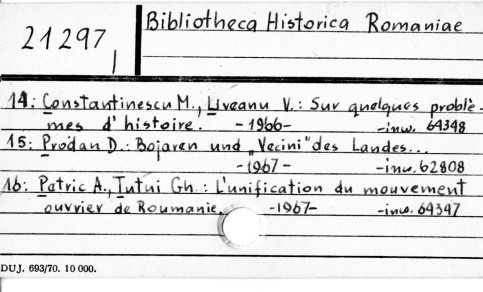 Bibliotheca Historica Romaniae
21297
I
14: Constantinescu M., Liveanu V.: Sur quelques problè-
mes d'histoire. -1966- -inv. 64348
15: Prodan D.: Bojaren und „Vecini" des Landes...
-1967- -inv. 62808
16: Patric A., Țuțui Gh.: L'unification du mouvement
ouvrier de Roumanie. -1967- -inv. 64347
DUJ. 693/70. 10 000.